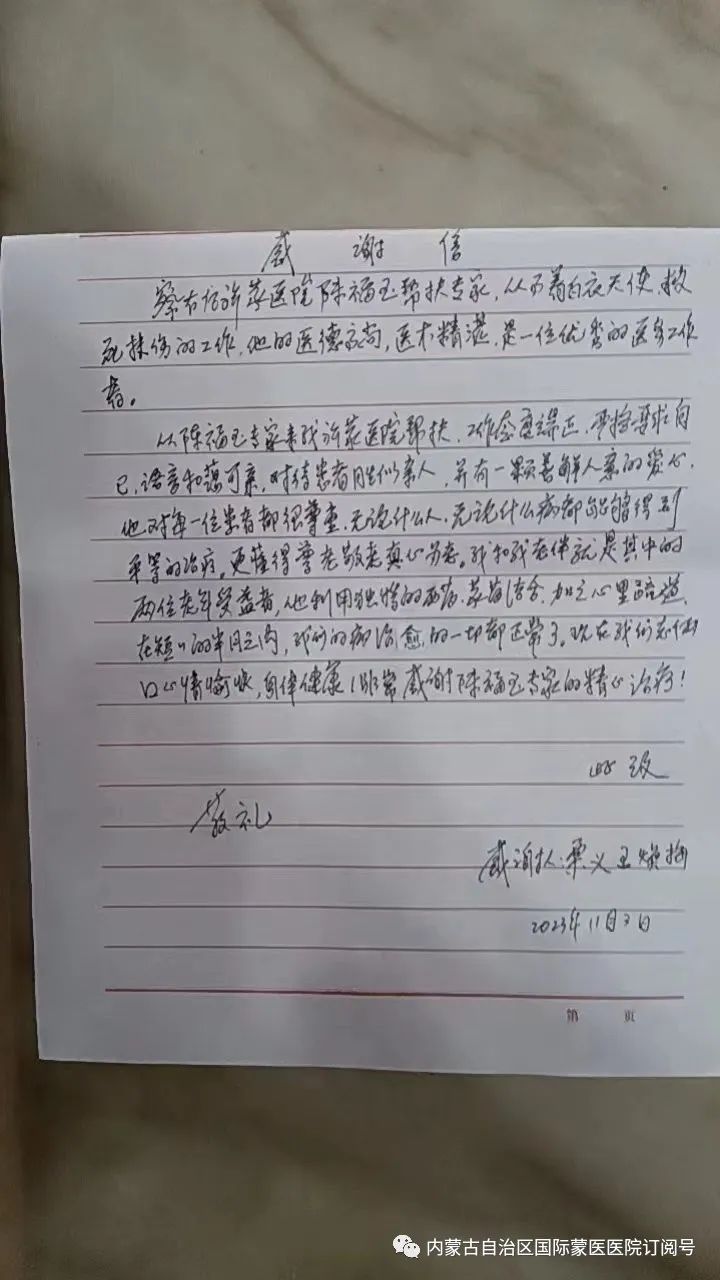 感谢信
察右后旗蒙医院陈福玉帮扶专家,从事着白衣天使,救
死扶伤的工作,他的医德高尚,医术精湛,是一位优秀的医务工作
者。
从陈福玉专家来我旗蒙医院帮扶,工作态度端正,严格要求自
己,语言和蔼可亲,对待患者胜似亲人,并有一颗善解人意的爱心,
他对每一位患者都很尊重,无论什么人,无论什么病都能够得到
平等的治疗。更懂得尊老敬老真心为老。我和我老伴就是其中的
两位老年受益者,他利用独特的西药、蒙药结合,加之心里疏道,
在短短的半月之内,我们的病治愈的一切都正常了。现在我们老俩
口心情愉快,身体健康!非常感谢陈福玉专家的精心治疗!
此致
敬礼
感谢人:栗义 王焕
2023年11月3日
第 页
内蒙古自治区国际蒙医医院订阅号